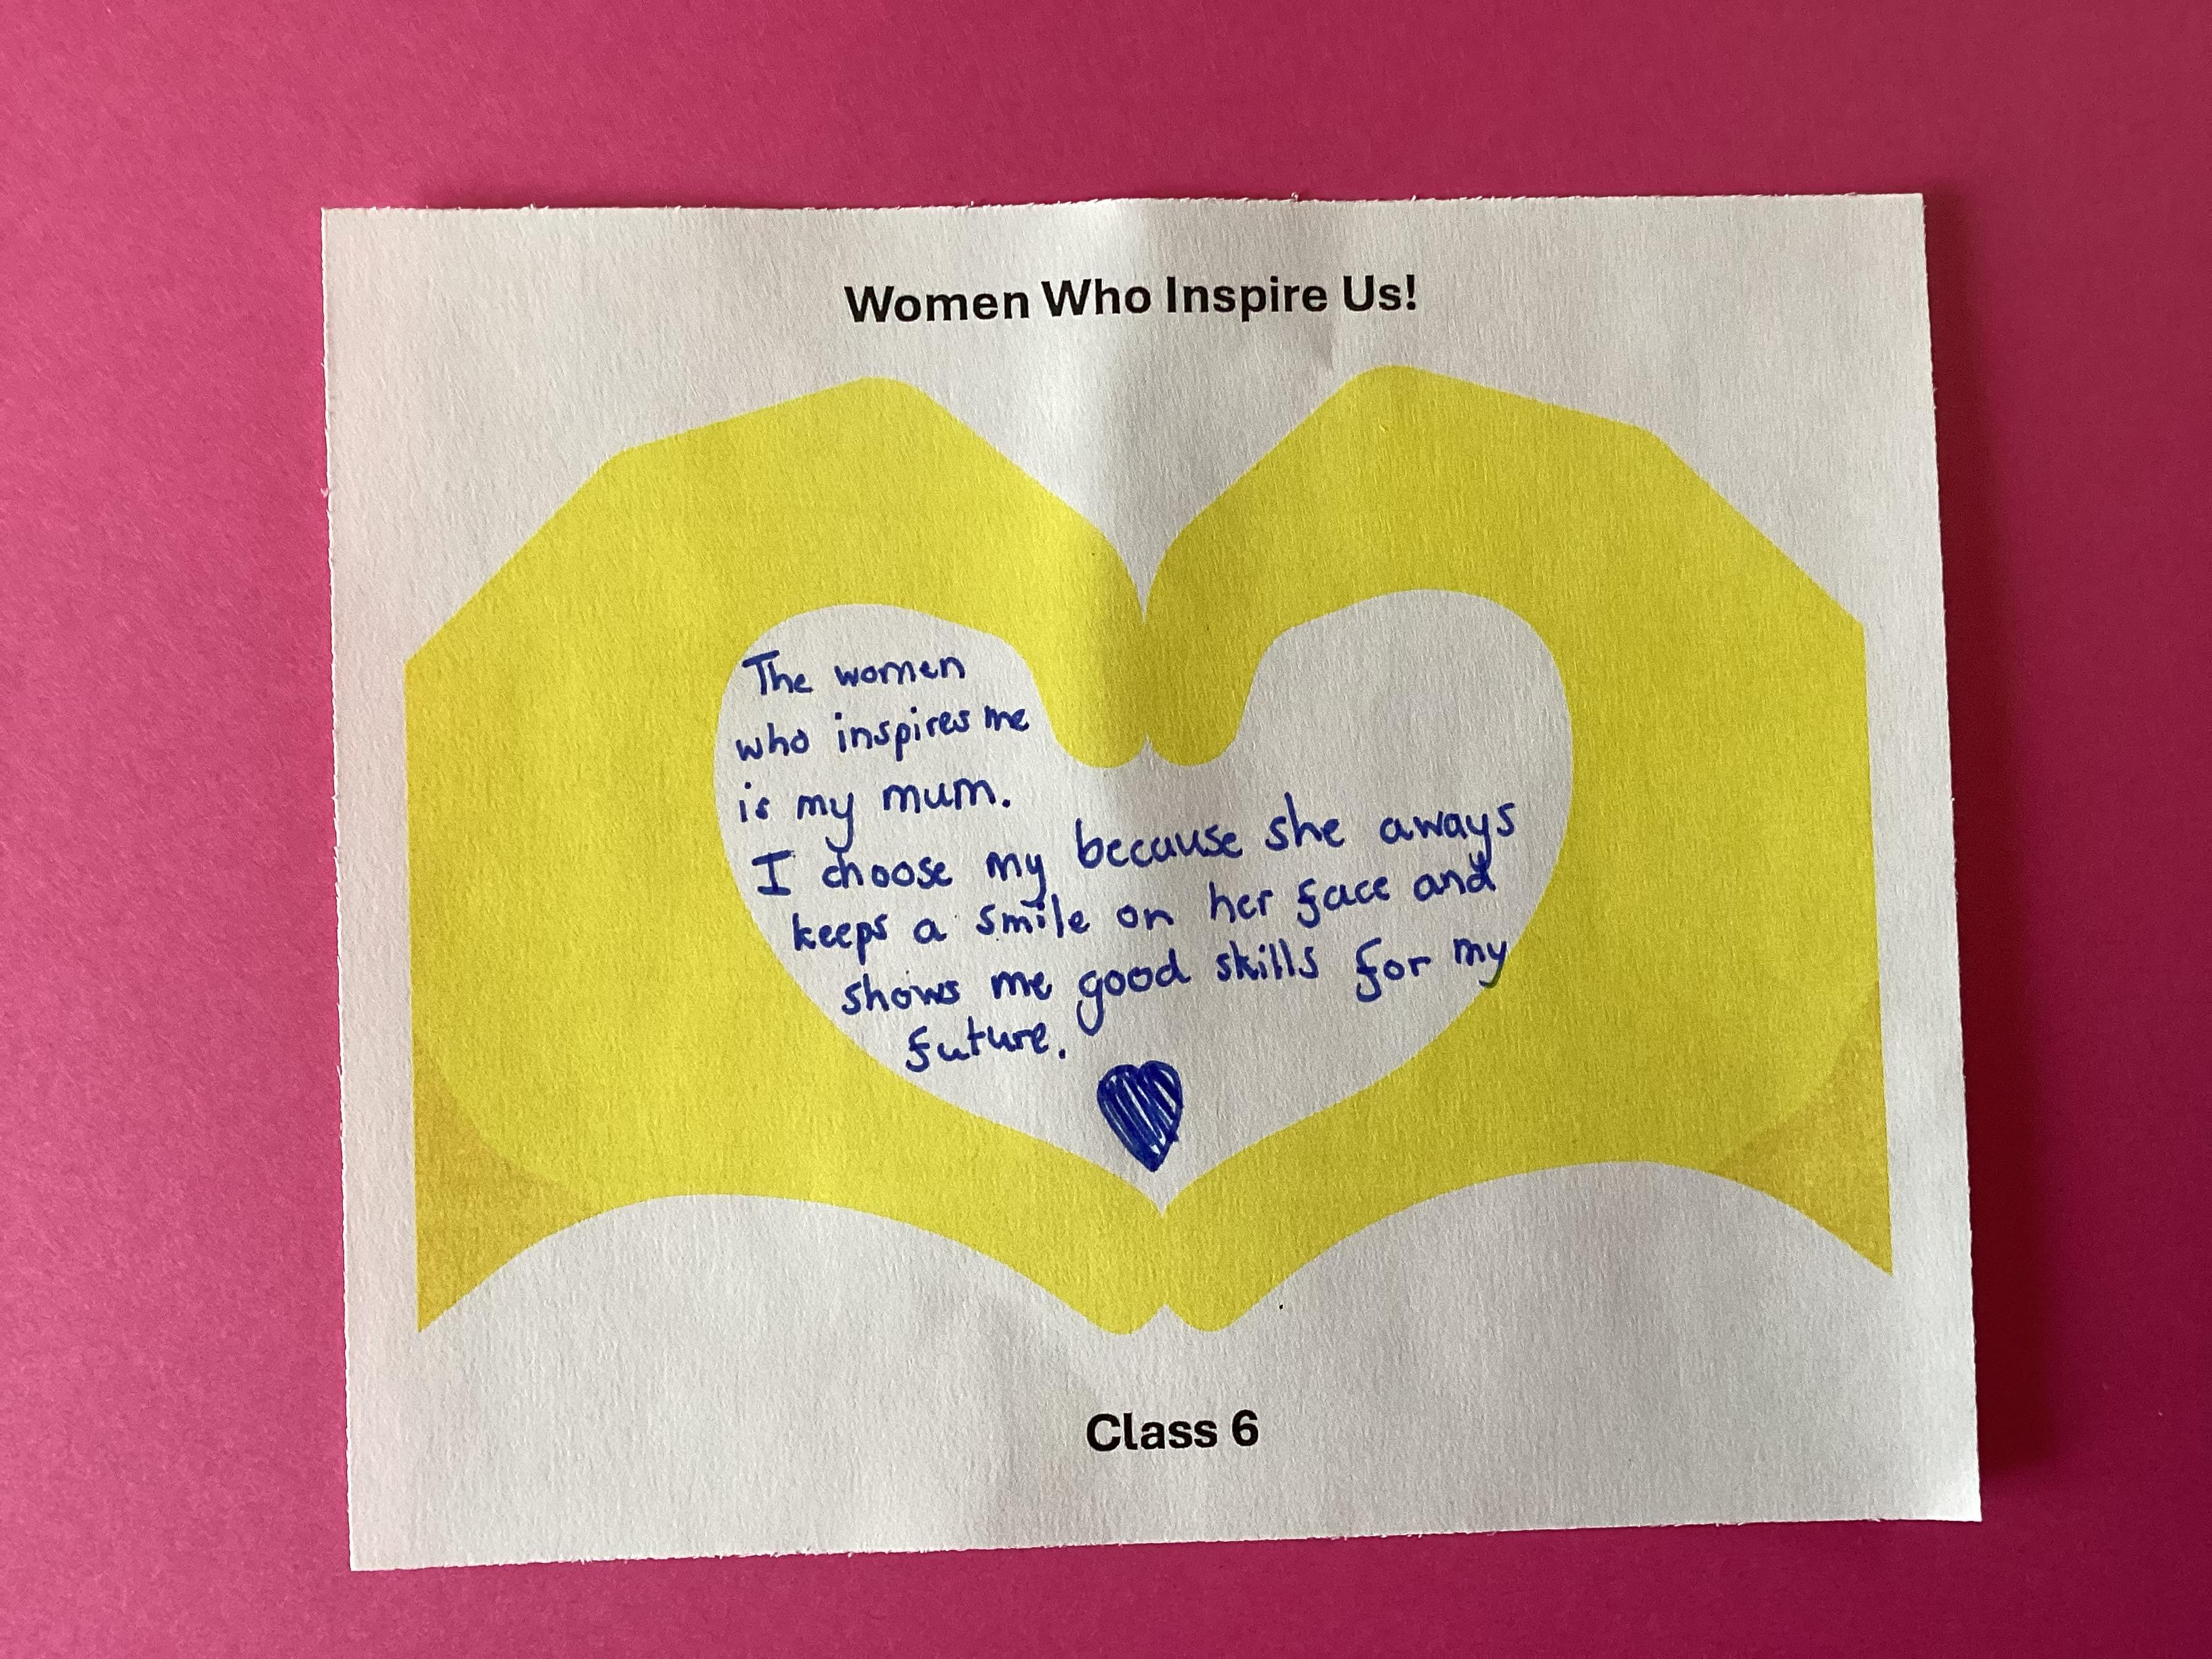 Women Who Inspire Us!
The women
who inspires me
is my mum.
I choose my because she aways
keeps a smile on her face and
shows me good skills for my
future.
Class 6